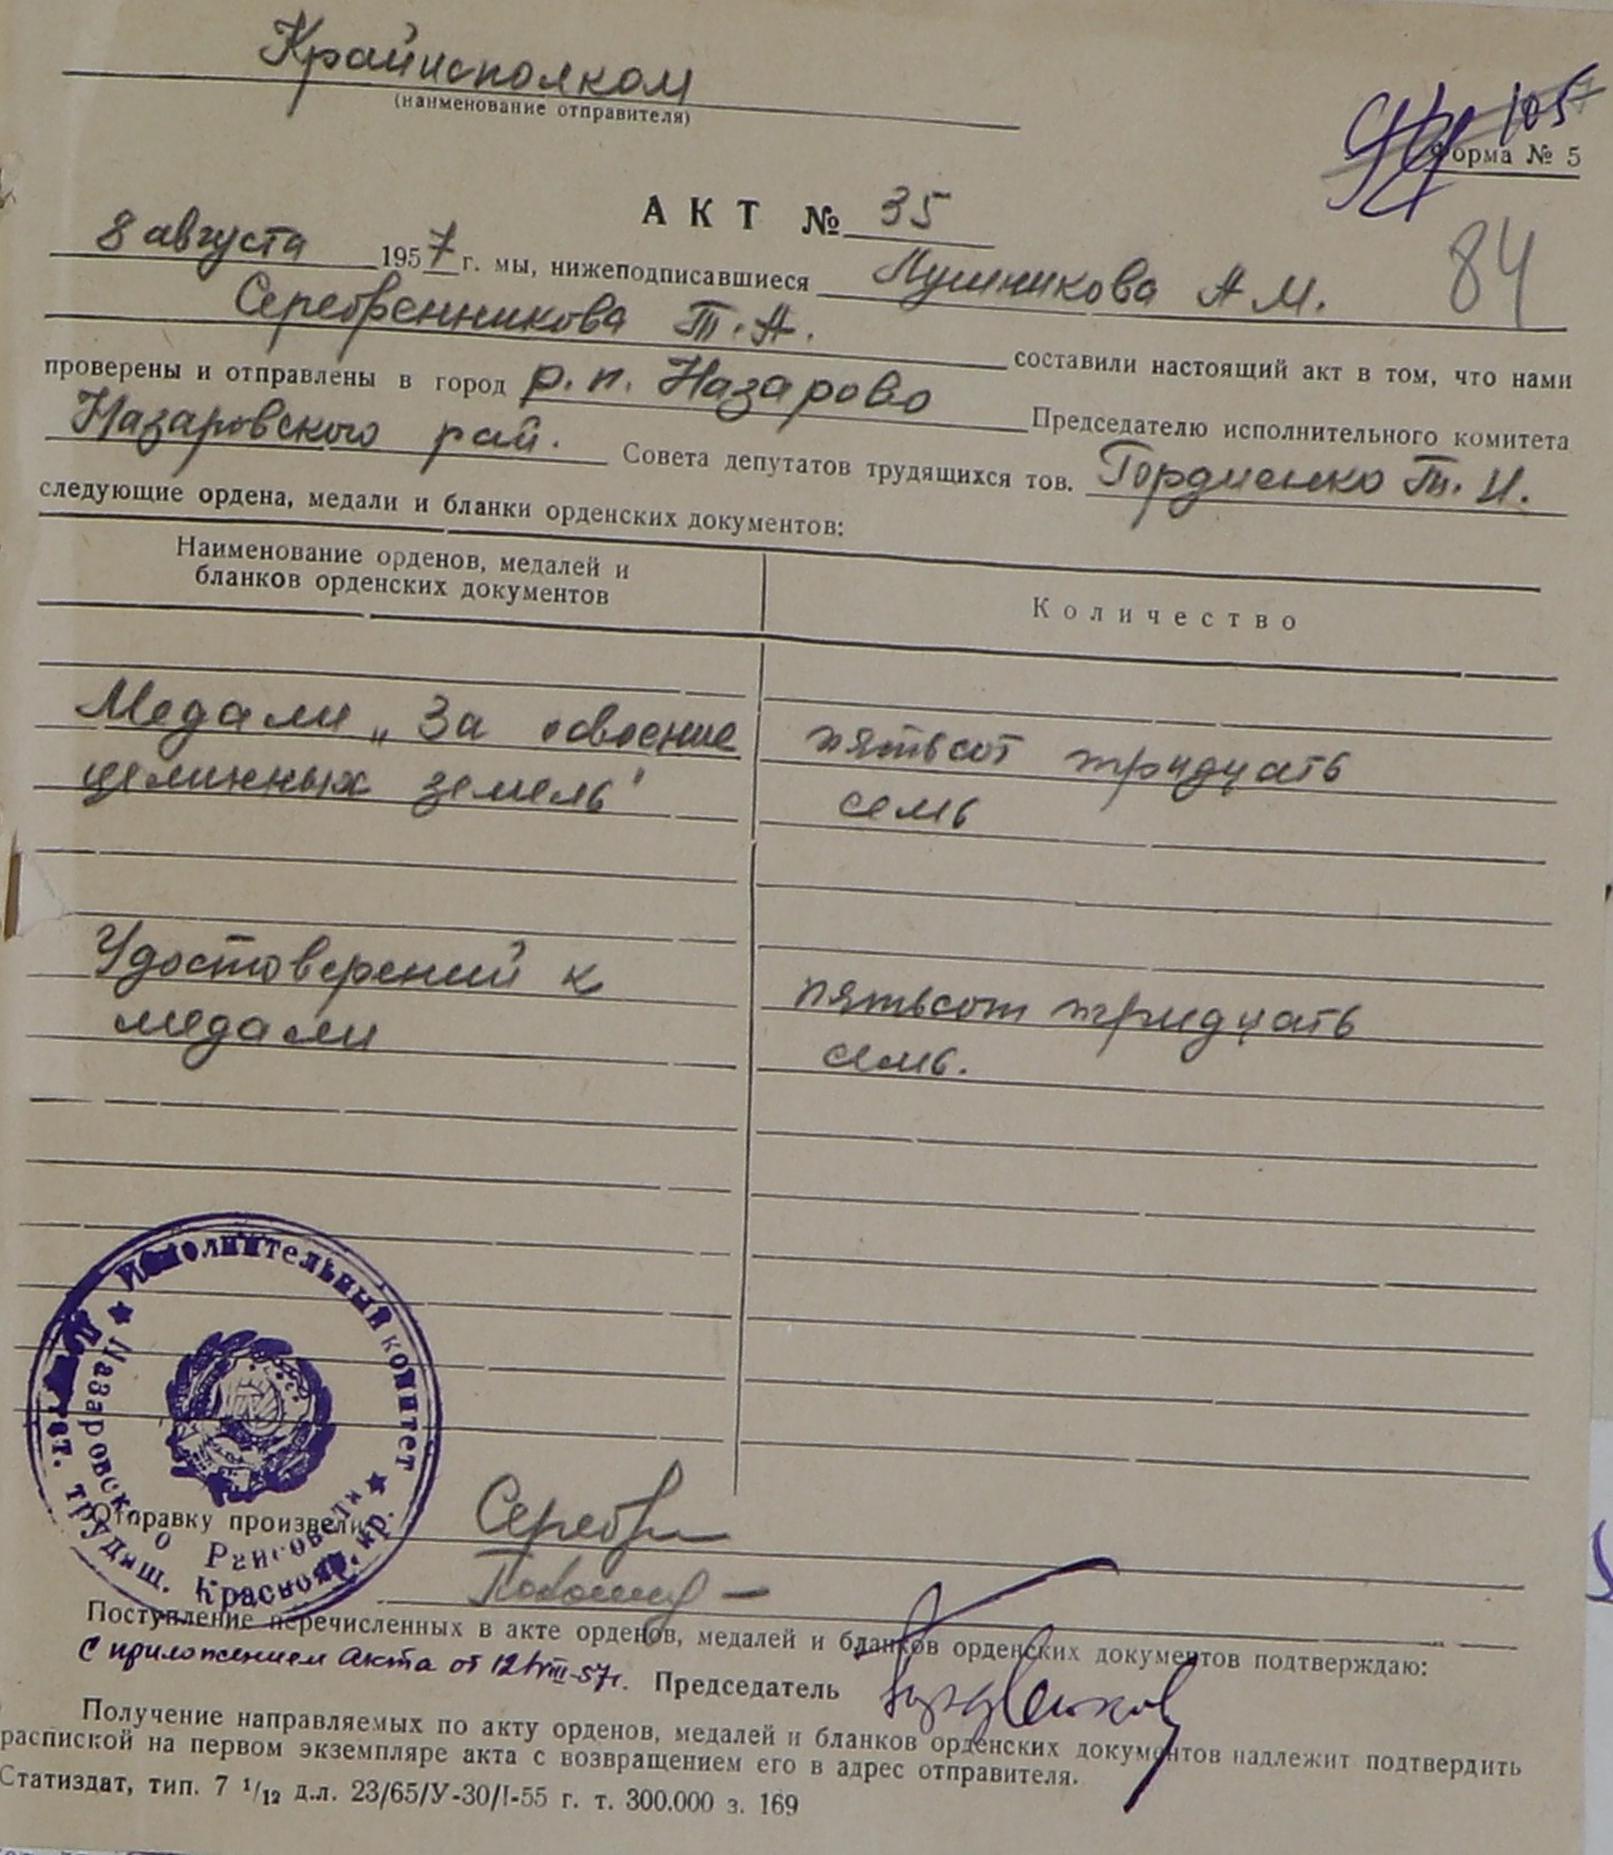 Крайисполком
(наименование отправителя)
105
Форма № 5
АКТ № 35
84
8 августа 1957 г. мы, нижеподписавшиеся Лушникова А М.
Серебренникова Т. А. составили настоящий акт в том, что нами
проверены и отправлены в город р.п. Назарово Председателю исполнительного комитета
Назаровского рай. Совета депутатов трудящихся тов. Гордиенко Т. И.
следующие ордена, медали и бланки орденских документов:
Наименование орденов, медалей и
бланков орденских документов
Количество
Медали „За освоение
целинных земель"
пятьсот тридцать
семь
Удостоверений к
медали
пятьсот тридцать
семь.
Исполнительный комитет
Назаровского Райсовета
деп. трудящ. Краснояр. кр.
Отправку произвели:
Поступление перечисленных в акте орденов, медалей и бланков орденских документов подтверждаю:
с приложением Акта от 12/VIII-57г. Председатель
Получение направляемых по акту орденов, медалей и бланков орденских документов надлежит подтвердить
распиской на первом экземпляре акта с возвращением его в адрес отправителя.
Статиздат, тип. 7 1/12 д.л. 23/65/У-30/I-55 г. т. 300.000 з. 169